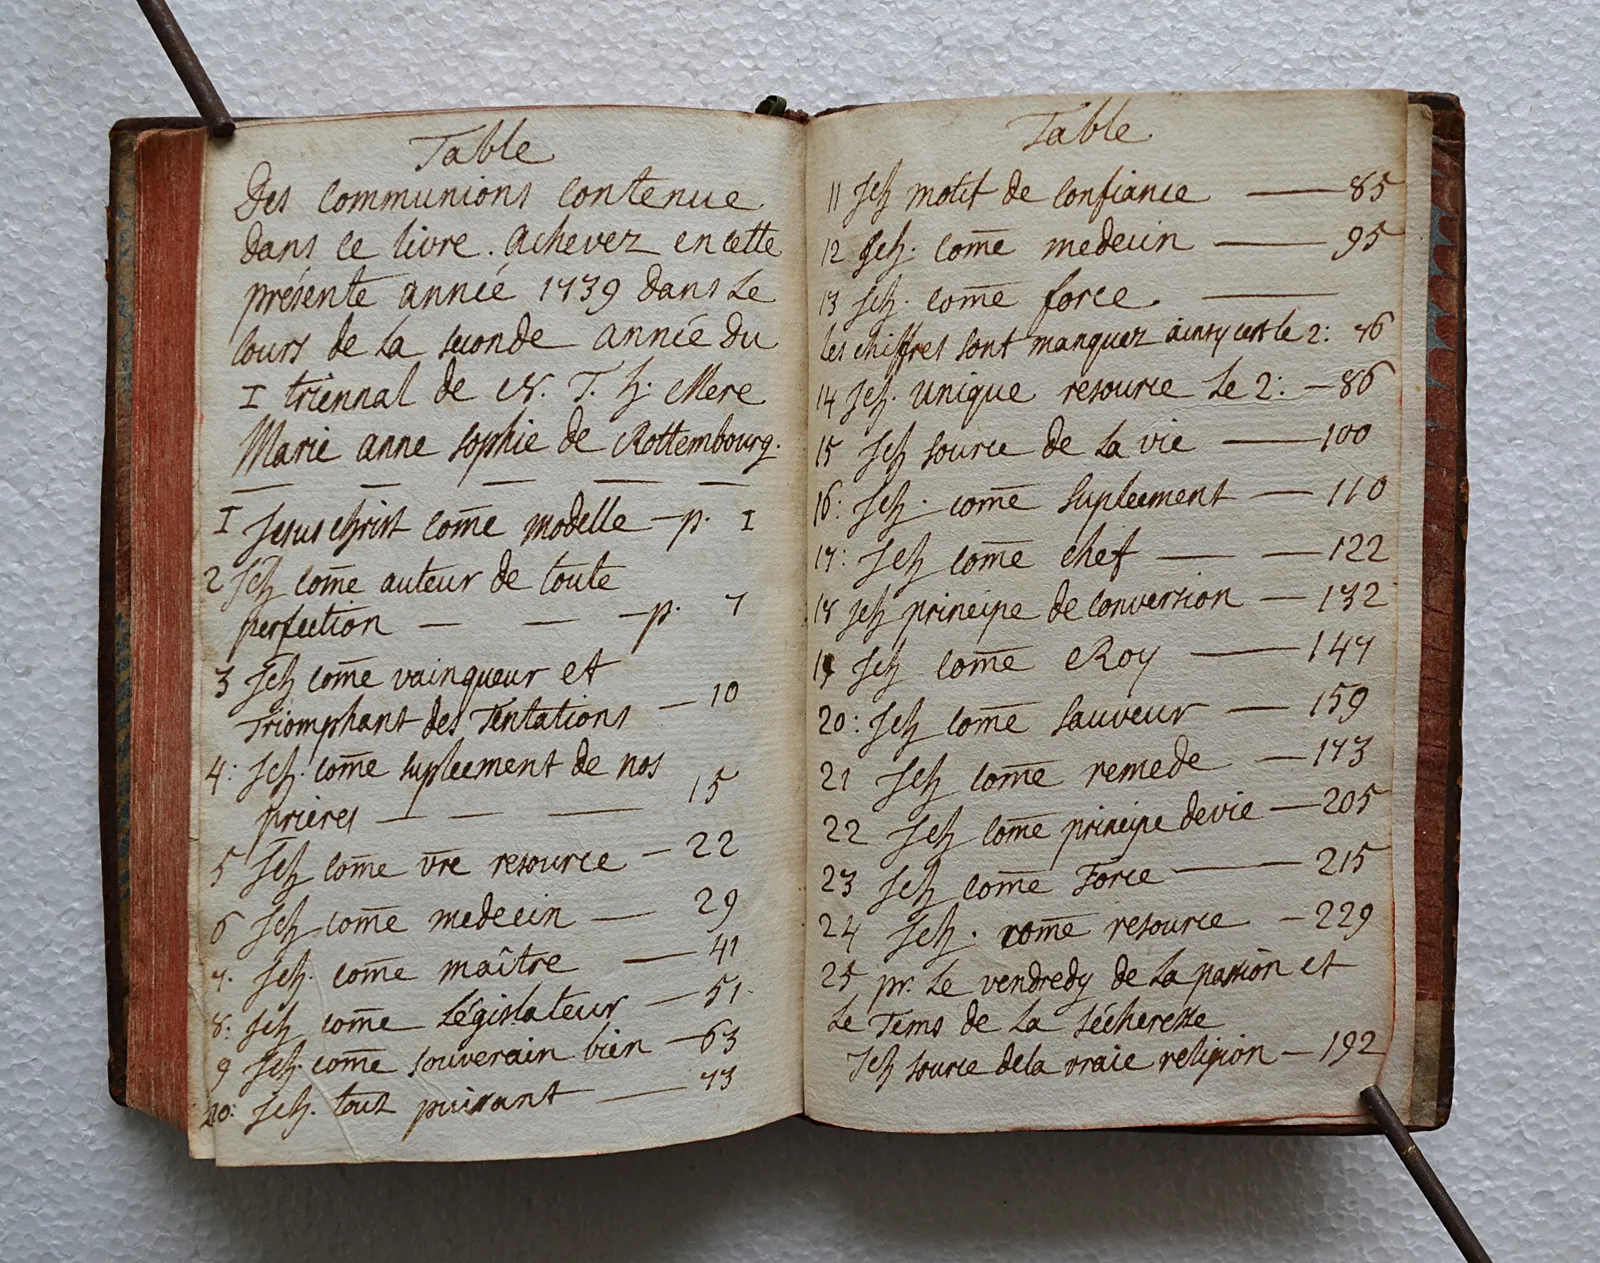 Table
Des communions contenue
dans ce livre. achevez en cette
présente année 1739 dans Le
cours de La seconde année du
I triennal de N. T. h. Mere
Marie anne sophie de Rottembourg.
I Jesus christ com̄e modelle — p. I
2 Jch com̄e auteur de toute
perfection — — — p. 7
3 Jch com̄e vainqueur et
Triomphant des Tentations — 10
4: Jch. com̄e supleement de nos
prieres — — — 15
5 Jch com̄e vr̄e resource — 22
6 Jch com̄e medecin — 29
7. Jch. com̄e maître — 41
8: Jch com̄e Législateur — 51.
9 Jch. com̄e souverain bien — 63
10: Jch. tout puissant — 73
Table.
11 Jch motif de confiance — 85
12 Jch. com̄e medecin — 95
13 Jch. com̄e force. —
les chiffres sont manquez ainsy cest le 2: 76
14 Jch. unique resource Le 2: — 86
15 Jch source de La vie — 100
16: Jch. com̄e supleement — 110
17: Jch com̄e chef — — 122
18 Jch principe de conversion — 132
19 Jch com̄e Roy — 147
20: Jch com̄e sauveur — 159
21 Jch com̄e remede — 173
22 Jch com̄e principe de vie — 205
23 Jch com̄e Force — 215
24 Jch. com̄e resource — 229
25 pr. Le vendredy de La passion et
Le Tems de La sécheresse
Jch source de la vraie religion — 192